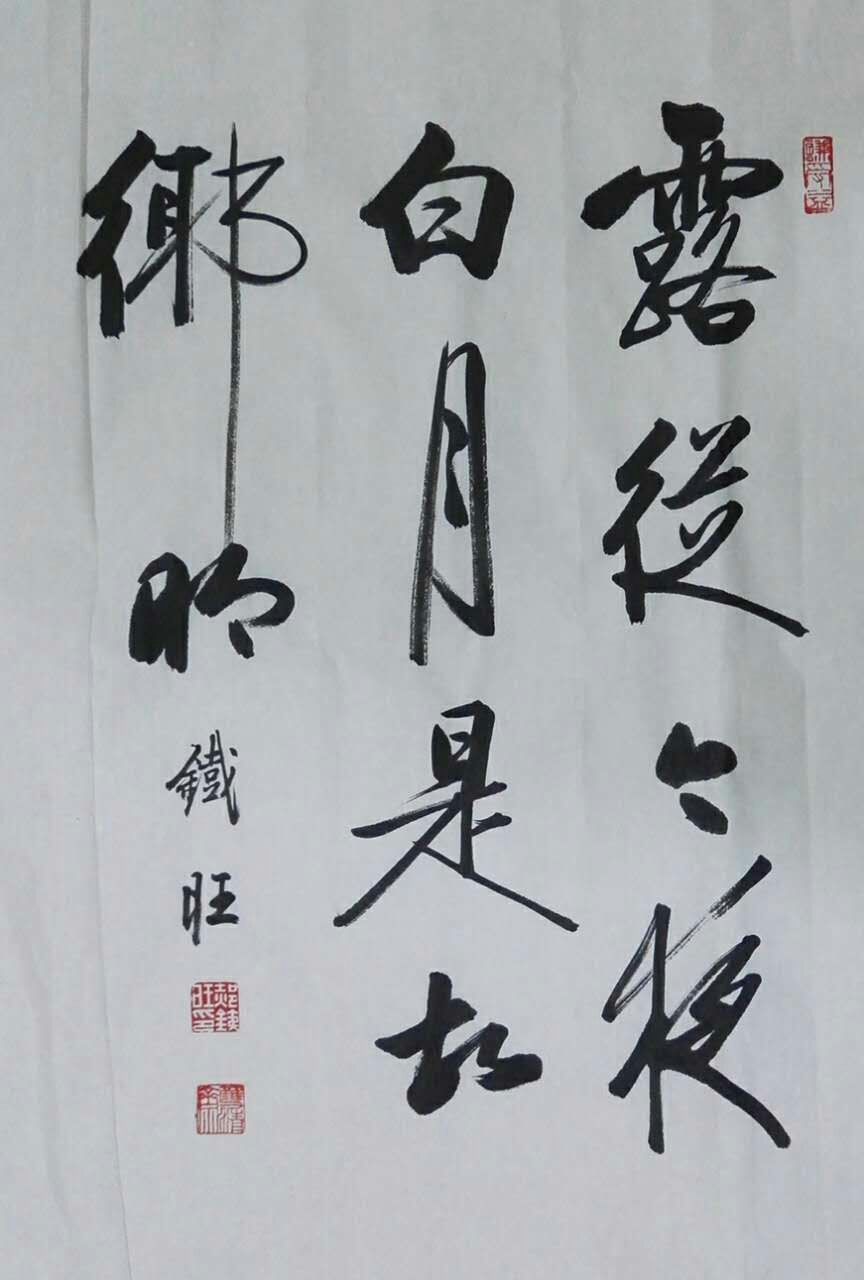 露從今夜
白月是故
鄉明
鐵旺